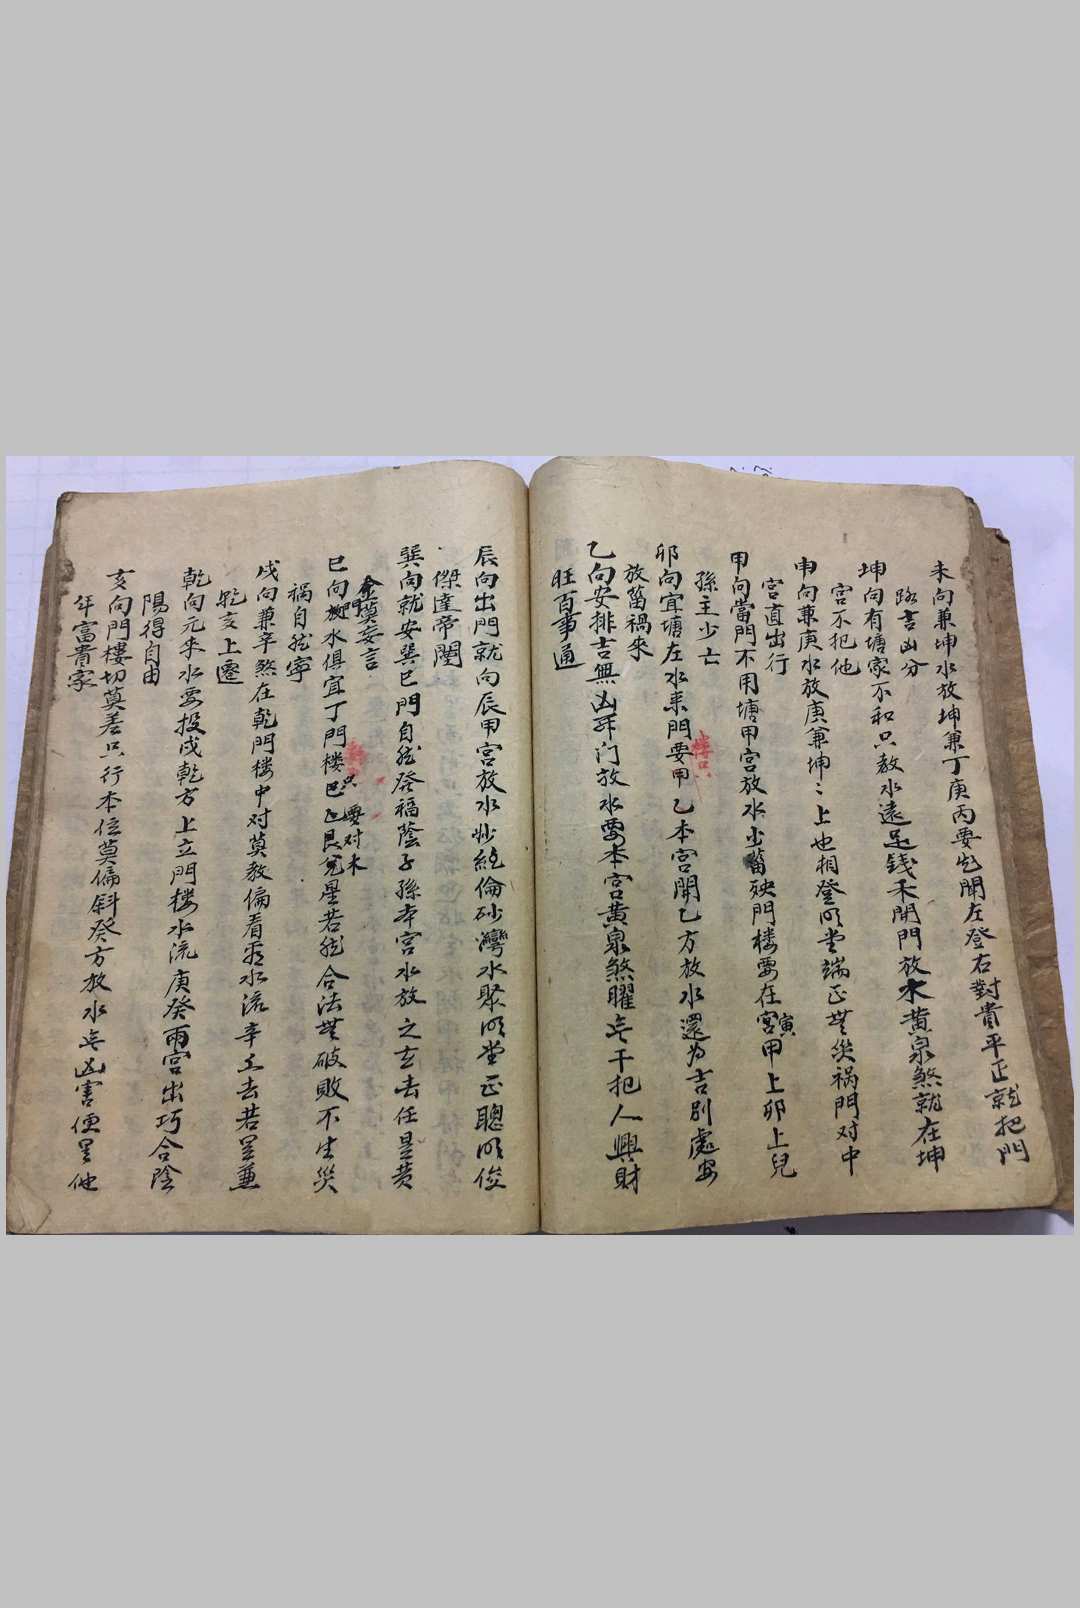 未向兼坤水放坤兼丁庚丙要 開左登右對貴平正就把門
路言凶分
坤向有塘家不和只教水遠足錢禾開門放水黄泉煞就在坤
宫不犯他
申向兼庚水放庚兼坤〻上也相登明堂端正無災禍門对中
宫直出行
甲向當門不用塘甲宫放水出 殃門楼要在寅宫甲上卯上兒
孫主少亡
卯向宜塘左水来門要甲乙本宫開乙方放水還为吉别處安
楼只
放菑禍來
乙向安排吉無凶 门放水要本宫黄泉煞曜無干犯人興財
旺百事通
辰向出門就向辰甲宫放水妙絶倫砂灣水聚明堂正聰明俊
傑達帝閽
巽向就安巽巳門自然發福蔭子孫本宫水放之玄去任是黄
金莫妄言
巳向 水俱宜丁門楼巴 艮 星若然合法無破敗不生災
只要对未
禍自然寧
戌向兼辛煞在乾門楼中对莫教偏看 水流辛 去若是兼
乾亥上遷
乾向元來水要投戌乾方上立門楼水流庚癸兩宫出巧合陰
陽得自由
亥向門樓切莫差只行本位莫偏斜癸方放水無凶害便是他
年富貴家